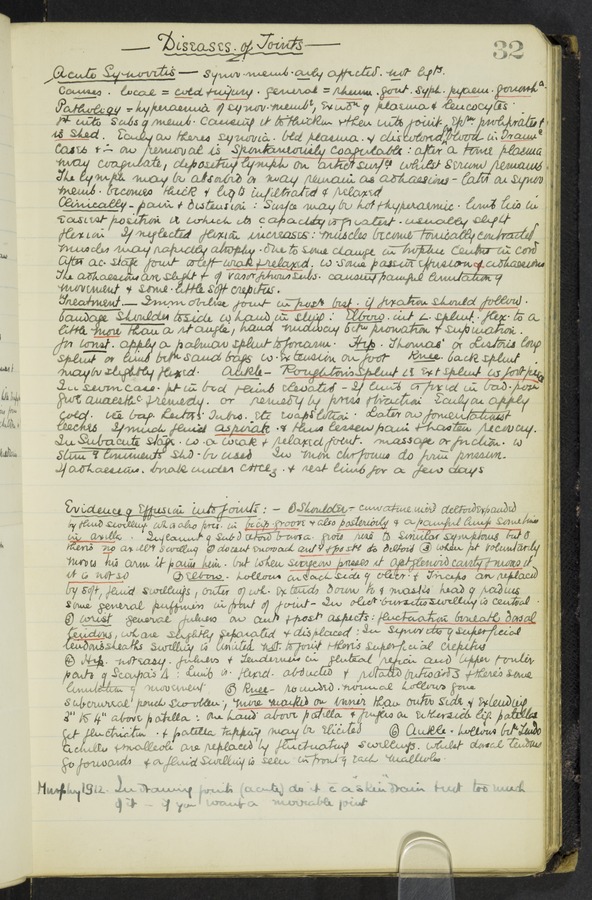 — Diseases of Joints —
32
Acute Synovitis — synov. memb. only affected. not ligts.
Causes. local = cold & injury. general = rheum. gout. syph. pyaem. gonorrh
Pathology = hyperaemia of synov. memb, of plasma & leucocytes
1st into subs of memb. causing it to thicken & then into joint, proliferates &
is shed. Early on theres synovia. bld plasma. & discoloured by blood in Traum
cases & on removal is spontaneously coagulable: after a time plasma
may coagulate, depositing lymph on whilst serum remains
The lymph may be absorbed or may remain as adhaesions - later on synov
memb. becomes thick & ligts infiltrated & relaxed
Clinically - pain & distension: Surface may be hot & hyperaemic. limb lies in
easiest position in which its capacity is greatest. usually slight
flexion If neglected flexion increases: muscles become tonically contracted
muscles may rapidly atrophy. due to some change in trophic centres in cord
After ac. stage joint is left weak & relaxed. w some passive effusion or adhaesions
The adhaesions are slight & of vasc. fibrous subs. causing painful limitation of
movement & some little soft crepitus.
Treatment — Immobilise joint in posn best if fixation should follow.
bandage Shoulder to side w hand in sling: Elbow. int L. splint. flex. to a
little more than a rt angle, hand midway betw pronation & supination.
for wrist. apply a palmar splint to forearm. Hip. Thomas' or Listons long
splint or limb betw sand bags w. extension on foot Knee back splint
may be slightly flexed. Ankle - Roughton's splint is ext splint w foot piece
In severe cases. pt in bed limb elevated - If limb is fixed in bad posn
give anaesth & remedy. or remedy by press & traction Early on apply
cold. ice bag Leiters tubes. Etc evap. lotion. Later on fomentations
leeches If much fluid aspirate & thus lessen pain & hasten recovery.
In Subacute stage. w a weak & relaxed joint. massage or friction. w
stim g liniments shd. be used In more chr forms do firm pressure.
If adhaesions. break under CHCl3 & rest limb for a few days
Evidence of Effusion into joints: - ① Shoulder - curvature incrd deltoid expanded
by fluid swelling wh is also pres. in bicip groove & also posteriorly & a painful lump sometimes
in axilla. Inflamn of sub deltoid bursa gives rise to similar symptoms but ①
there's no axillary swelling ② doesnt encroach ant & postr to deltoid ③ when pt voluntarily
moves his arm it pains him. but when surgeon presses it agst glenoid cavity & moves it,
it is not so ② Elbow. hollows on each side of olecr. & Triceps are replaced
by soft, fluid swellings, outer of wh. extends down to & masks head of radius
some general puffiness in front of joint - In olect bursitis swelling is central.
③ wrist general fulness on ant & post aspects: fluctuation beneath dorsal
tendons, wh are slightly separated & displaced: In synovitis of superficial
tendon sheaths swelling is limited not to joint & there's superficial crepitus
④ Hip. not easy. fulness & tenderness in gluteal region and upper & outer
part of Scarpa's Δ: limb is flexed. abducted & rotated outwards & there's some
limitation of movement ⑤ Knee - rounded. normal hollows gone
subcrureal pouch swollen; more marked on inner than outer side & extending
3" to 4" above patella: one hand above patella & fingers on either side lig patellae
get fluctuation. & patella tapping may be elicited ⑥ Ankle. hollows betw Tendo
achilles & malleoli are replaced by fluctuating swellings. whilst dorsal tendons
go forwards & a fluid swelling is seen in front of each malleolus.
Murphy 1912. In draining joints (acute) do it c a "skin" drain & not too much
of it — if you want a moveable joint